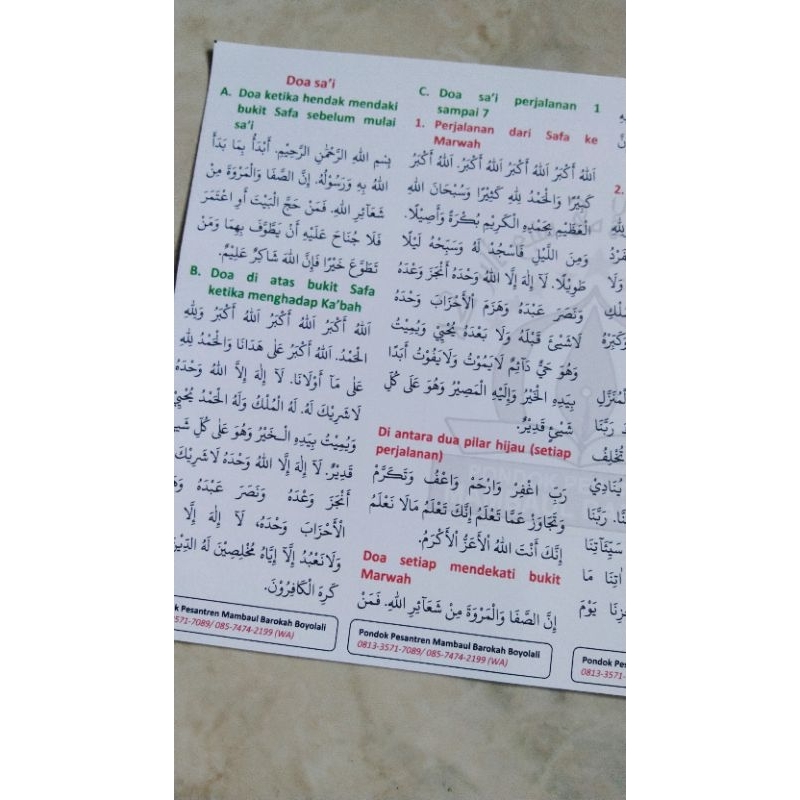 Doa sa'i
A. Doa ketika hendak mendaki
bukit Safa sebelum mulai
sa'i
بِسْمِ اللهِ الرَّحْمٰنِ الرَّحِيْمِ. أَبْدَأُ بِمَا بَدَأَ
اللهُ بِهِ وَرَسُوْلُهُ. إِنَّ الصَّفَا وَالْمَرْوَةَ مِنْ
شَعَآئِرِ اللهِ. فَمَنْ حَجَّ الْبَيْتَ أَوِ اعْتَمَرَ
فَلَا جُنَاحَ عَلَيْهِ أَنْ يَطَّوَّفَ بِهِمَا وَمَنْ
تَطَوَّعَ خَيْرًا فَإِنَّ اللهَ شَاكِرٌ عَلِيْمٌ.
B. Doa di atas bukit Safa
ketika menghadap Ka'bah
اَللهُ أَكْبَرُ اَللهُ أَكْبَرُ اَللهُ أَكْبَرُ وَلِلهِ
الْحَمْدُ. اَللهُ أَكْبَرُ عَلَى هَدَانَا وَالْحَمْدُ لِلهِ
عَلَى مَآ أَوْلَانَا. لَآ إِلٰهَ إِلَّا اللهُ وَحْدَهُ
لَا شَرِيْكَ لَهُ. لَهُ الْمُلْكُ وَلَهُ الْحَمْدُ يُحْيِيْ
وَيُمِيْتُ بِيَدِهِ الْخَيْرُ وَهُوَ عَلَى كُلِّ
قَدِيْرٌ. لَآ إِلٰهَ إِلَّا اللهُ وَحْدَهُ لَاشَرِيْكَ
أَنْجَزَ وَعْدَهُ وَنَصَرَ عَبْدَهُ
الْأَحْزَابَ وَحْدَهُ، لَآ إِلٰهَ إِلَّا
وَلَانَعْبُدُ إِلَّآ إِيَّاهُ مُخْلِصِيْنَ لَهُ الدِّيْنَ
كَرِهَ الْكَافِرُوْنَ.
k Pesantren Mambaul Barokah Boyolali
3571-7089/ 085-7474-2199 (WA)
C. Doa sa'i perjalanan 1
sampai 7
1. Perjalanan dari Safa ke
Marwah
اَللهُ أَكْبَرُ اَللهُ أَكْبَرُ اَللهُ أَكْبَرُ. اَللهُ أَكْبَرُ
كَبِيْرًا وَالْحَمْدُ لِلهِ كَثِيْرًا وَسُبْحَانَ اللهِ
الْعَظِيْمِ بِحَمْدِهِ الْكَرِيْمِ بُكْرَةً وَأَصِيْلًا.
وَمِنَ اللَّيْلِ فَاسْجُدْ لَهُ وَسَبِّحْهُ لَيْلًا
طَوِيْلًا. لَآ إِلٰهَ إِلَّا اللهُ وَحْدَهُ أَنْجَزَ وَعْدَهُ
وَنَصَرَ عَبْدَهُ وَهَزَمَ الْأَحْزَابَ وَحْدَهُ
لَاشَيْئَ قَبْلَهُ وَلَا بَعْدَهُ يُحْيِيْ وَيُمِيْتُ
وَهُوَ حَيٌّ دَآئِمٌ لَايَمُوْتُ وَلَايَفُوْتُ أَبَدًا
بِيَدِهِ الْخَيْرُ وَإِلَيْهِ الْمَصِيْرُ وَهُوَ عَلَى كُلِّ
شَيْئٍ قَدِيْرٌ.
Di antara dua pilar hijau (setiap
perjalanan)
رَبِّ اغْفِرْ وَارْحَمْ وَاعْفُ وَتَكَرَّمْ
وَتَجَاوَزْ عَمَّا تَعْلَمُ إِنَّكَ تَعْلَمُ مَالَا نَعْلَمُ
إِنَّكَ أَنْتَ اللهُ الْأَعَزُّ الْأَكْرَمُ.
Doa setiap mendekati bukit
Marwah
إِنَّ الصَّفَا وَالْمَرْوَةَ مِنْ شَعَآئِرِ اللهِ. فَمَنْ
Pondok Pesantren Mambaul Barokah Boyolali
0813-3571-7089/ 085-7474-2199 (WA)
2.
وَلَا
رَبَّنَا
تُخْلِفُ
يُنَادِيْ
رَبَّنَا
سَيِّئَاتِنَا
مَا
يَوْمَ
Pondok Pes
0813-3571-